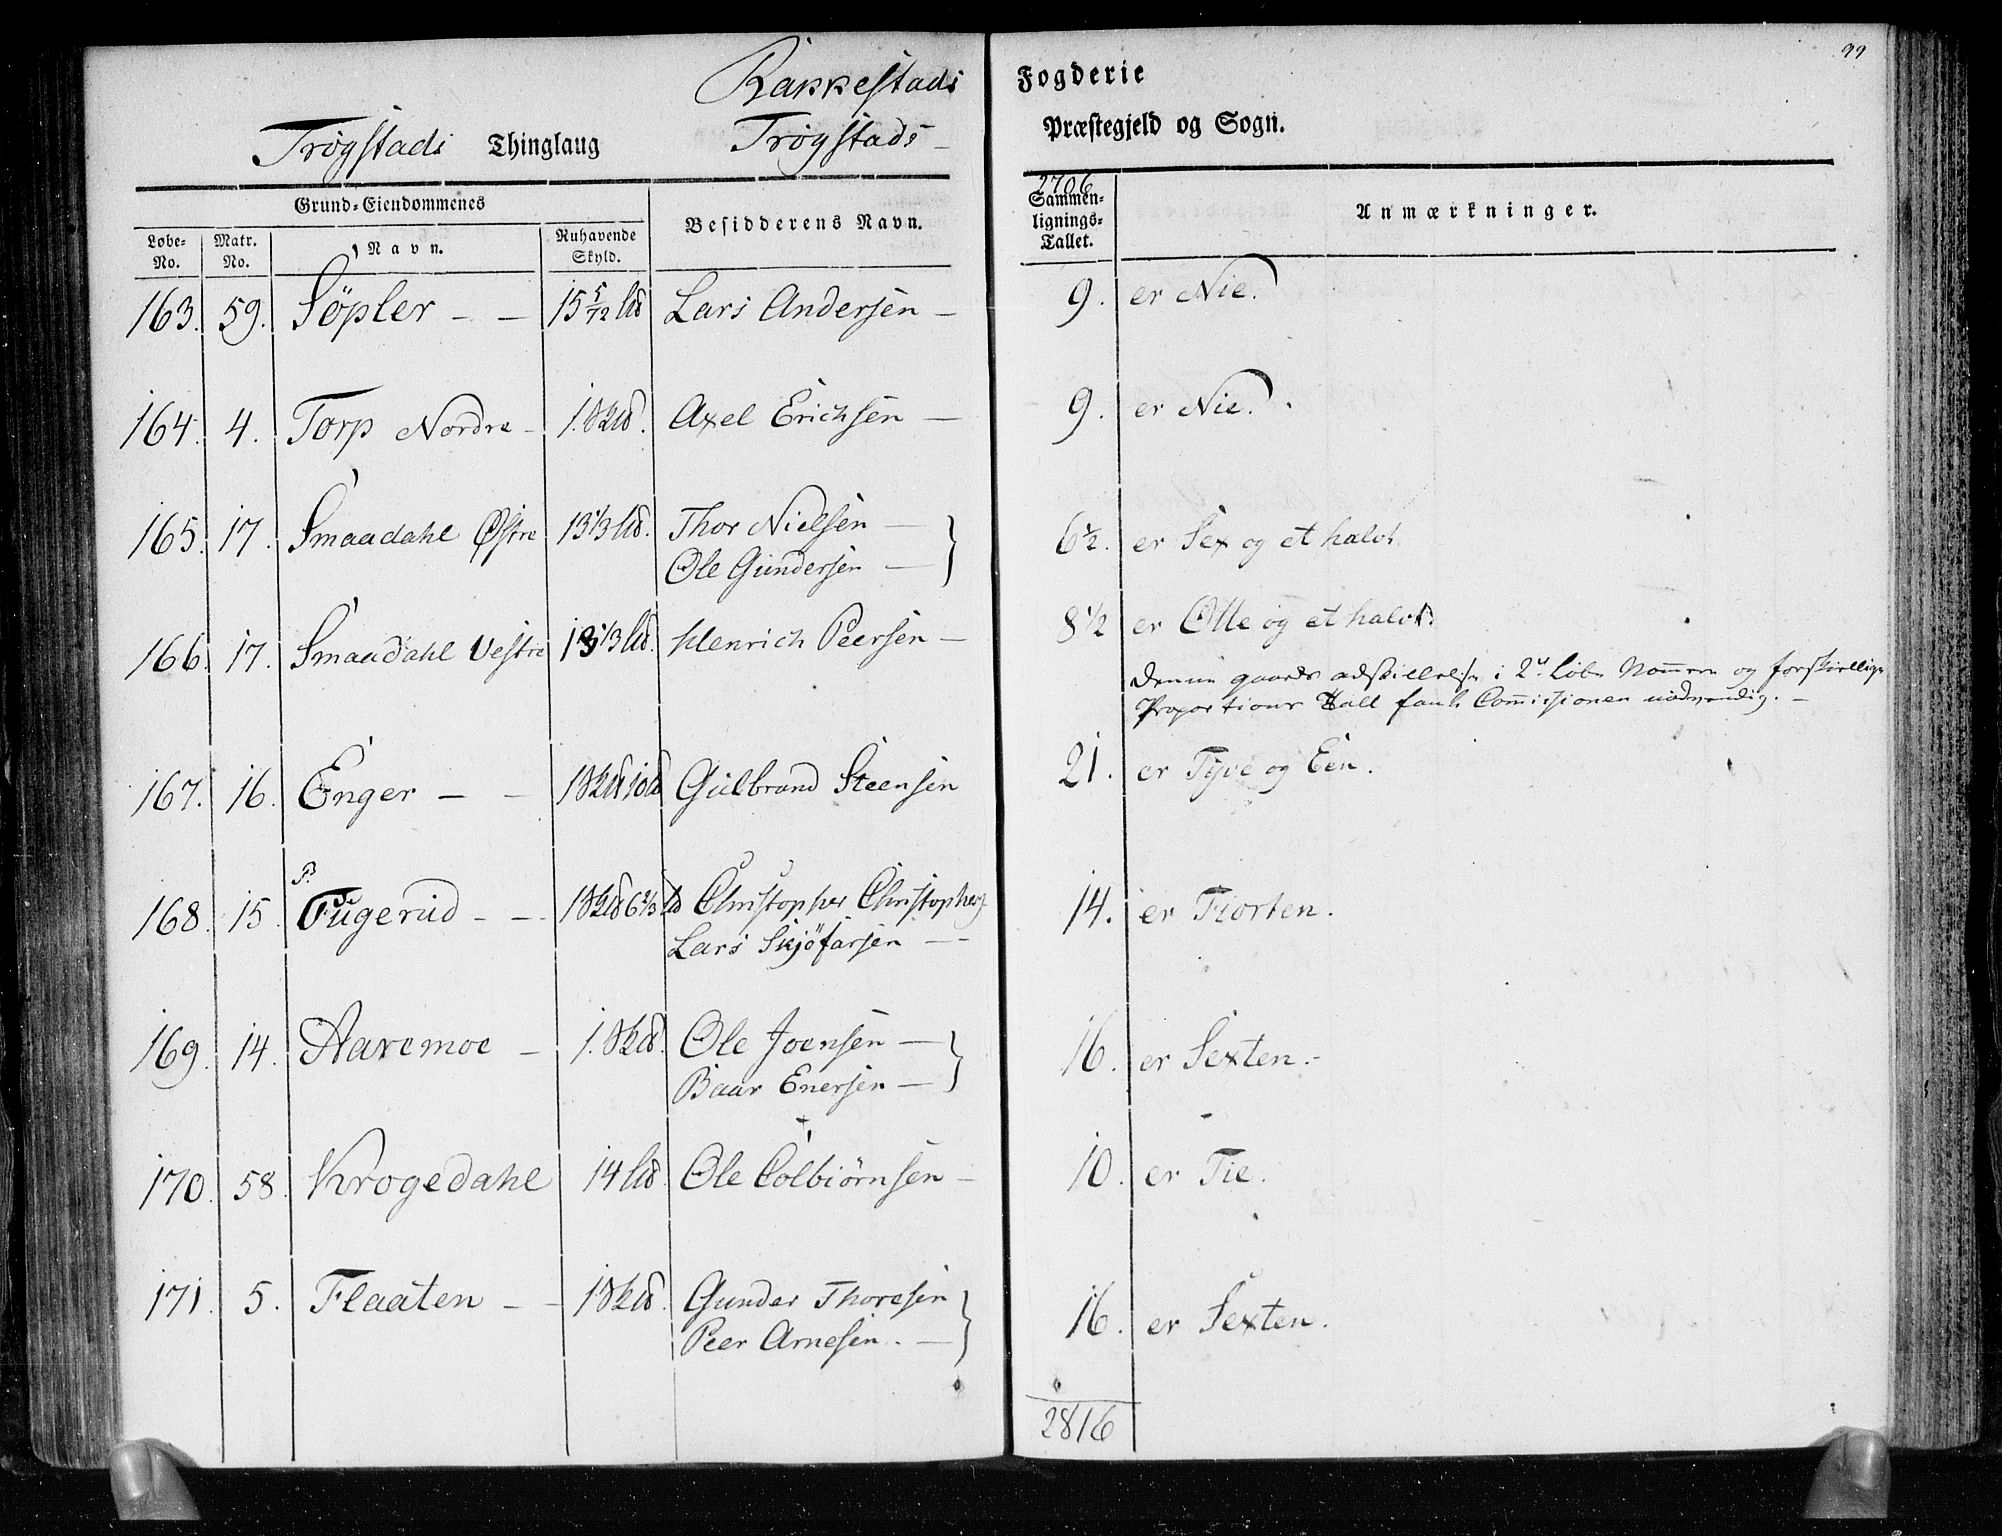 99
Rakkestads Fogderie
Trøgstads Thinglaug Trøgstads Præstegjeld og Sogn.
2706
Grund-Eiendommenes
Løbe-No. Matr. No. Navn. Nuhavende Skyld. Besidderens Navn. Sammenlignings-Tallet. Anmærkninger.
163. 59. Söpler 15 5/12 l℔ Lars Andersen 9. er Nie.
164. 4. Torp Nordre 1. Sk℔. Axel Erichsen 9. er Nie.
165. 17. Smaadahl Østre 13 1/3 l℔. Thor Nielsen 6 1/2. er Sex og et halvt
Ole Gundersen
166. 17. Smaadahl Vestre 13 1/3 l℔. Henrich Peersen 8 1/2 er Otte og et halvt.
Denne gaards adskillelse i 2de Løbe Nommere og forskiellige
Proportions Tall fandt Commissionen nødvendig.
167. 16. Enger 1 Sk℔ 10 l℔ Gulbrand Steensen 21. er Tyve og Een.
168. 15. Fugerud 1 Sk℔ 6 2/3 l℔ Christopher Christophers 14. er Fiorten.
Lars Skjöfarsen
169. 14. Aaremoe 1. Sk℔. Ole Joensen 16. er Sexten.
Baar Enersen
170. 58. Krogedahl 14 l℔ Ole Colbiørnsen 10. er Tie.
171. 5. Flaaten 1 Sk℔. Gunder Thoresen 16. er Sexten.
Peer Arnesen.
2816